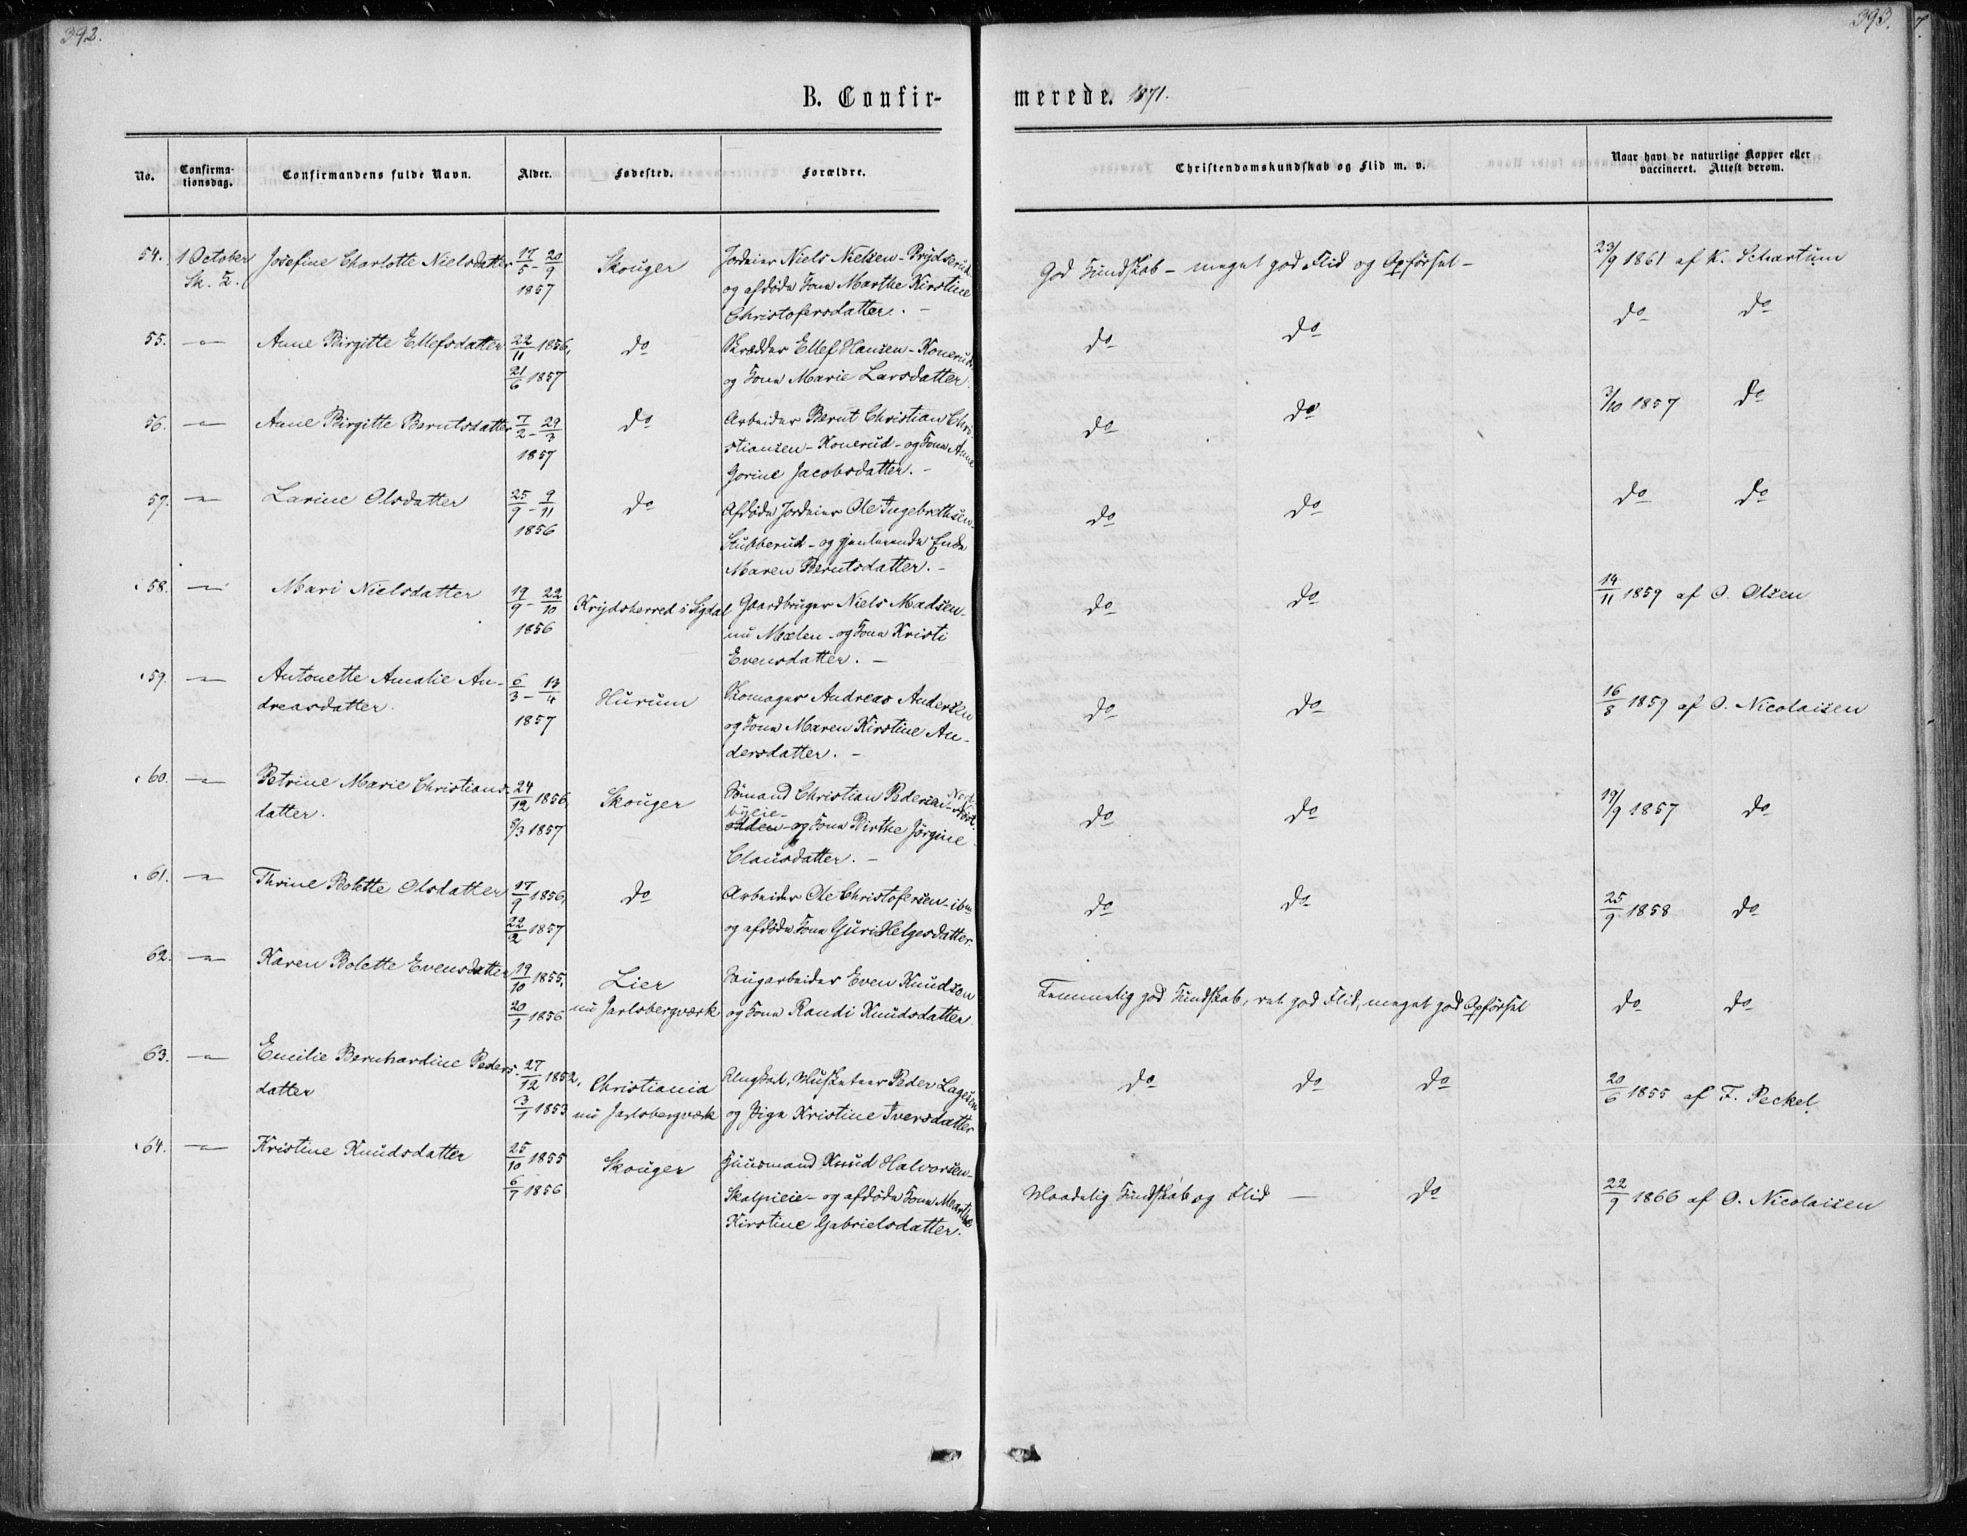 392.
393.
7.
B. Confir-
merede. 1871.
No.
Confirma-
tionsdag.
Confirmandens fulde Navn.
Alder.
Fødested.
Forældre.
Christendomskundskab og Flid m. v.
Naar havt de naturlige Kopper eller
vaccineret. Attest derom.
54. 1 October Josefine Charlotte Nielsdatter 17/5 - 20/9 Skouger Jordeier Niels Nielsen - Prydserud
Sk. K. 1857 og afdøde Kone Marthe Kirstine
Christofersdatter. -
God Kundskab - meget god Flid og Opførsel - 23/9 1861 af K. Schartum
55. - Anne Birgitte Ellefsdatter 22/11 1856, do Skrædder Ellef Hansen - Konerud
21/6 1857 og Kone Marie Larsdatter.
do do do do
56. - Anne Birgitte Berntsdatter 7/2 - 29/3 do Arbeider Bernt Christian Chri-
1857 stiansen - Konerud - og Kone Anne
Gorine Jacobsdatter. -
do do 3/10 1857 do
57. - Larine Olsdatter 25/9 - 9/11 do Afdøde Jordeier Ole Ingebrethsen -
1856 Stubberud - og gjenlevende Enke
Maren Berntsdatter. -
do do do do
58. - Mari Nielsdatter 19/9 - 22/10 Krydsherred i Sigdal Gaardbruger Niels Madsen -
1856 nu Mælen - og Kone Kristi
Evensdatter. -
do do 14/11 1859 af O. Olsen
59. - Antonette Amalie An- 6/3 - 13/4 Hurum Skomager Andreas Andersen
dreasdatter. 1857 og Kone Maren Kirstine An-
dersdatter. -
do do 16/8 1859 af O. Nicolaisen
60. - Petrine Marie Christians- 24/12 1856 Skouger Sømand Christian Pedersen
datter. 8/3 1857 og Kone Birthe Jørgine
Clausdatter. -
do do 19/9 1857 do
61. - Thrine Bolette Olsdatter 17/9 1856, do Arbeider Ole Christofersen - ibm
22/2 1857 og afdøde Kone Guri Helgesdatter.
do do 25/9 1858 do
62. - Karen Bolette Evensdatter 19/10 1855, Lier Saugarbeider Even Knudsen
20/1 1856 nu Jarlsbergværk og Kone Randi Knudsdatter.
Temmelig god Kundskab, ret god Flid, meget god Opførsel do do
63. - Emilie Bernhardine Peders- 27/12 1852, Christiania Ungkarl, Musketeer Peder Lagesen
datter 3/1 1853 nu Jarlsbergværk og Pige Kristine Iversdatter
do do do 20/6 1855 af F. Peckel.
64. - Kristine Knudsdatter 25/10 1855 Skouger Huusmand Knud Halvorsen -
6/7 1856 Skalpieie - og afdøde Kone Marthe
Kirstine Gabrielsdatter.
Maadelig Kundskab og Flid - do 22/9 1866 af O. Nicolaisen